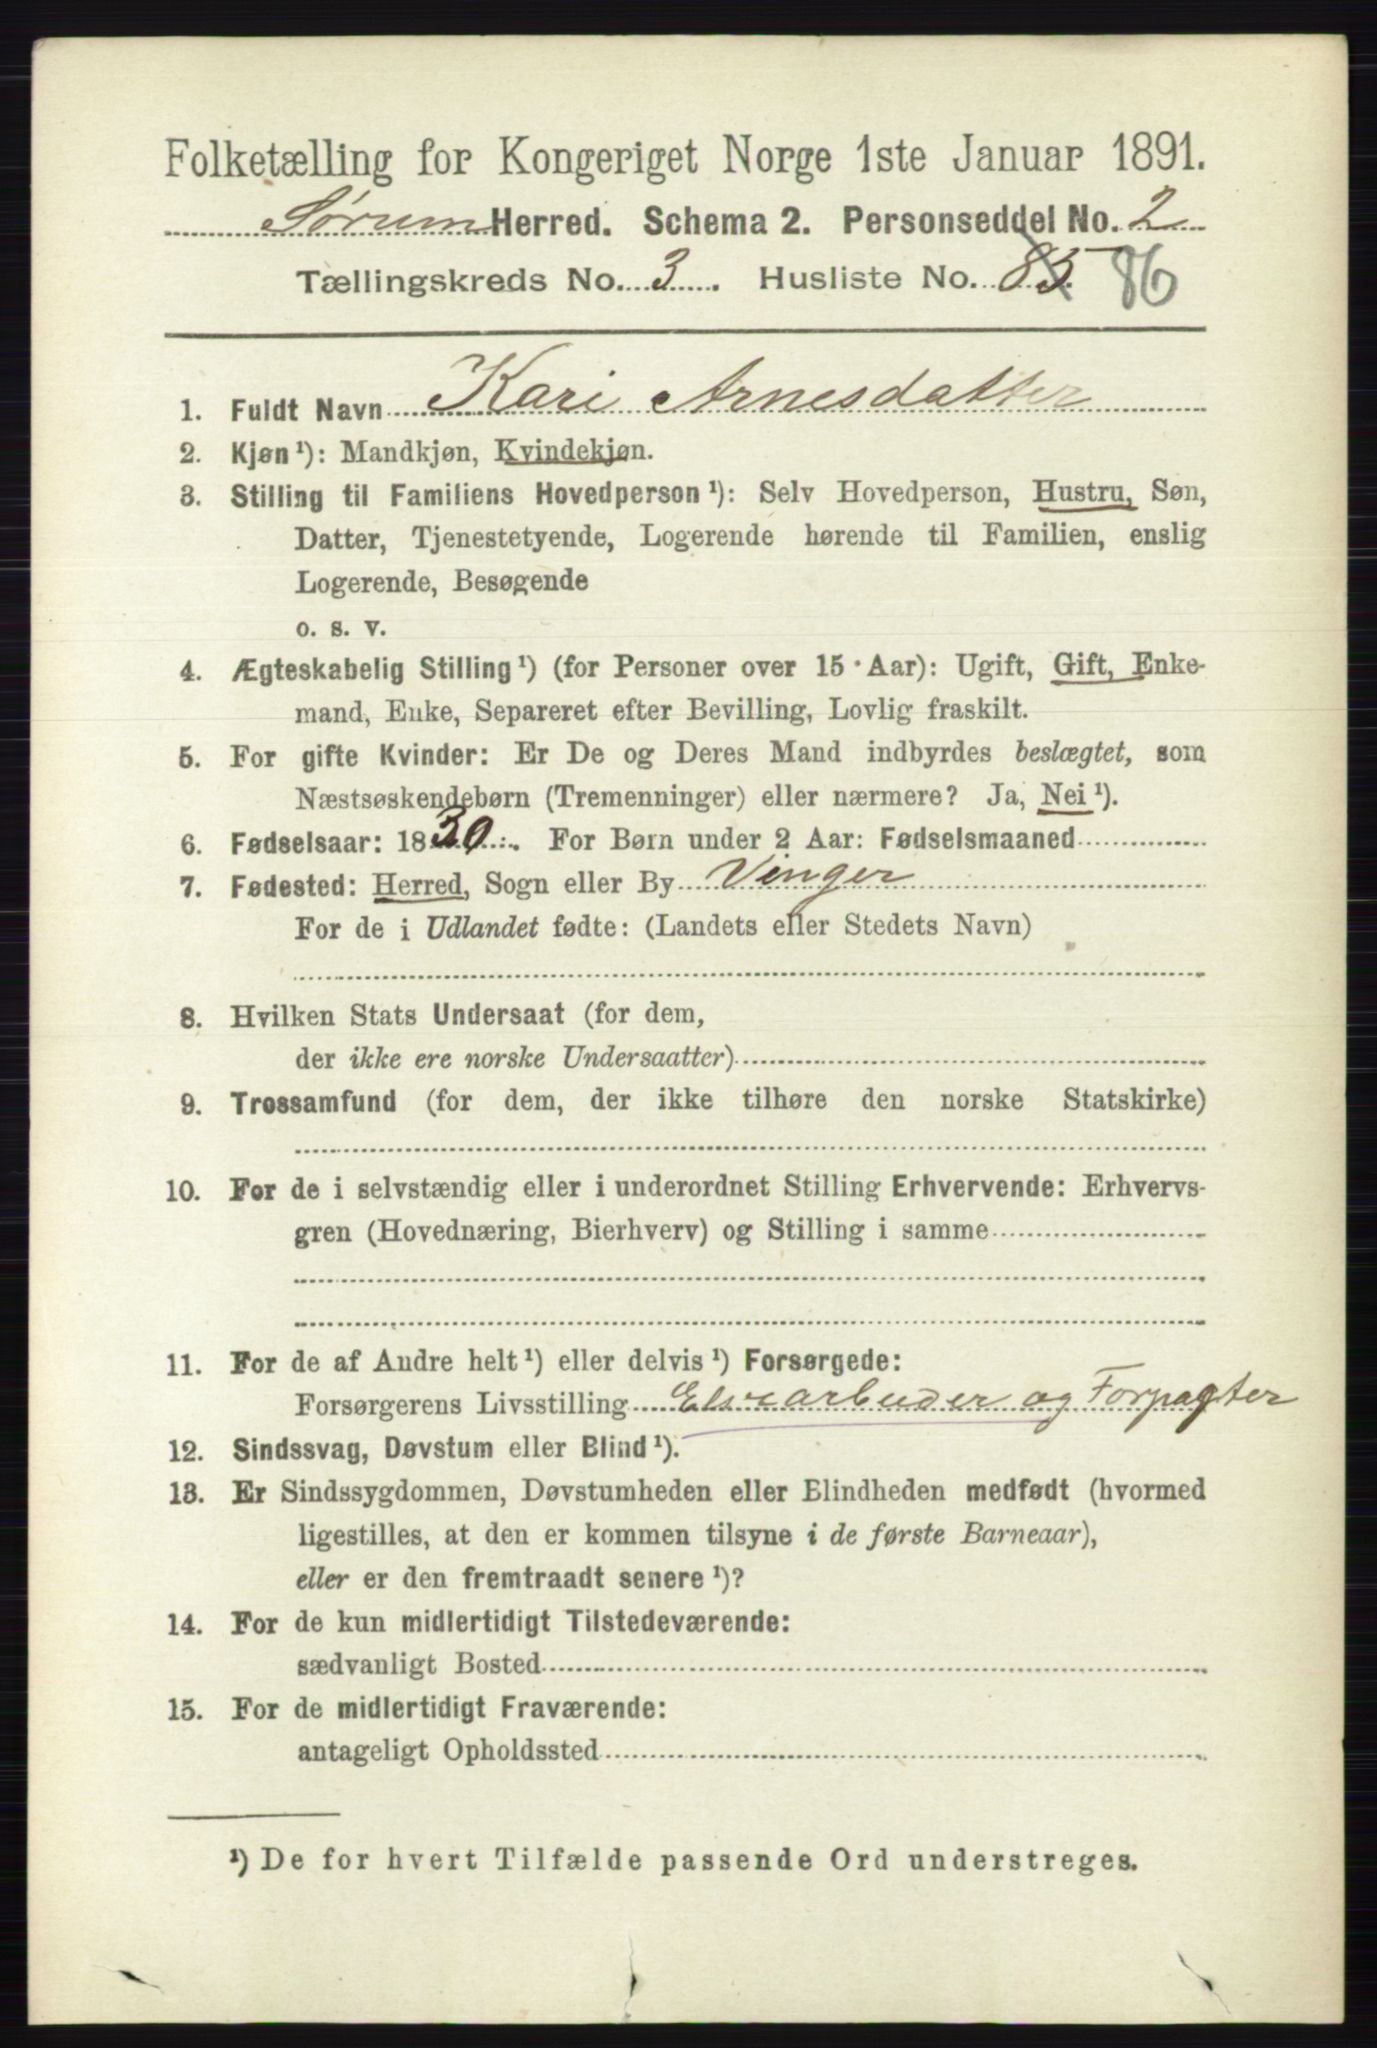 Folketælling for Kongeriget Norge 1ste Januar 1891.
Sørum Herred. Schema 2. Personseddel No. 2
Tællingskreds No. 3. Husliste No. 85 86
1. Fuldt Navn Kari Arnesdatter
2. Kjøn¹): Mandkjøn, Kvindekjøn.
3. Stilling til Familiens Hovedperson¹): Selv Hovedperson, Hustru, Søn,
Datter, Tjenestetyende, Logerende hørende til Familien, enslig
Logerende, Besøgende
o. s. v.
4. Ægteskabelig Stilling¹) (for Personer over 15 Aar): Ugift, Gift, Enke-
mand, Enke, Separeret efter Bevilling, Lovlig fraskilt.
5. For gifte Kvinder: Er De og Deres Mand indbyrdes beslægtet, som
Næstsøskendebørn (Tremenninger) eller nærmere? Ja, Nei¹).
6. Fødselsaar: 1830. For Børn under 2 Aar: Fødselsmaaned
7. Fødested: Herred, Sogn eller By Vinger
For de i Udlandet fødte: (Landets eller Stedets Navn)
8. Hvilken Stats Undersaat (for dem,
der ikke ere norske Undersaatter)
9. Trossamfund (for dem, der ikke tilhøre den norske Statskirke)
10. For de i selvstændig eller i underordnet Stilling Erhvervende: Erhvervs-
gren (Hovednæring, Bierhverv) og Stilling i samme
11. For de af Andre helt¹) eller delvis¹) Forsørgede:
Forsørgerens Livsstilling Elvearbeider og Forpagter
12. Sindssvag, Døvstum eller Blind¹).
13. Er Sindssygdommen, Døvstumheden eller Blindheden medfødt (hvormed
ligestilles, at den er kommen tilsyne i de første Barneaar),
eller er den fremtraadt senere¹)?
14. For de kun midlertidigt Tilstedeværende:
sædvanligt Bosted
15. For de midlertidigt Fraværende:
antageligt Opholdssted
¹) De for hvert Tilfælde passende Ord understreges.